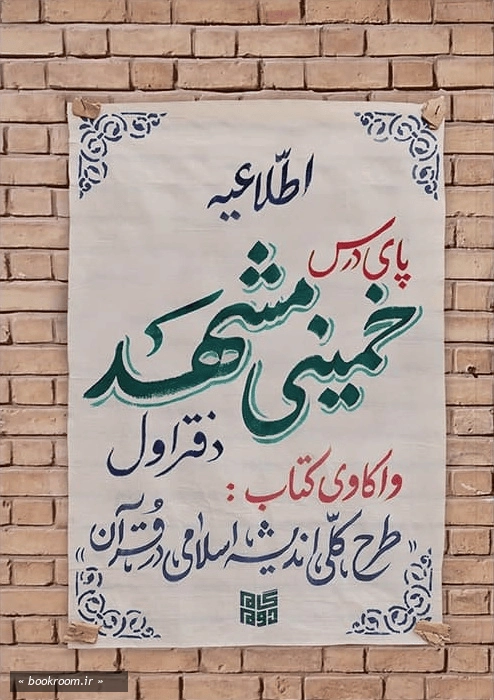 اطلّاعیه
پای درس
خمینی مشهد
دفتر اول
واکاوی کتاب :
"طرح کلّی اندیشه اسلامی در قُرآن"
گام دوم
« bookroom.ir »